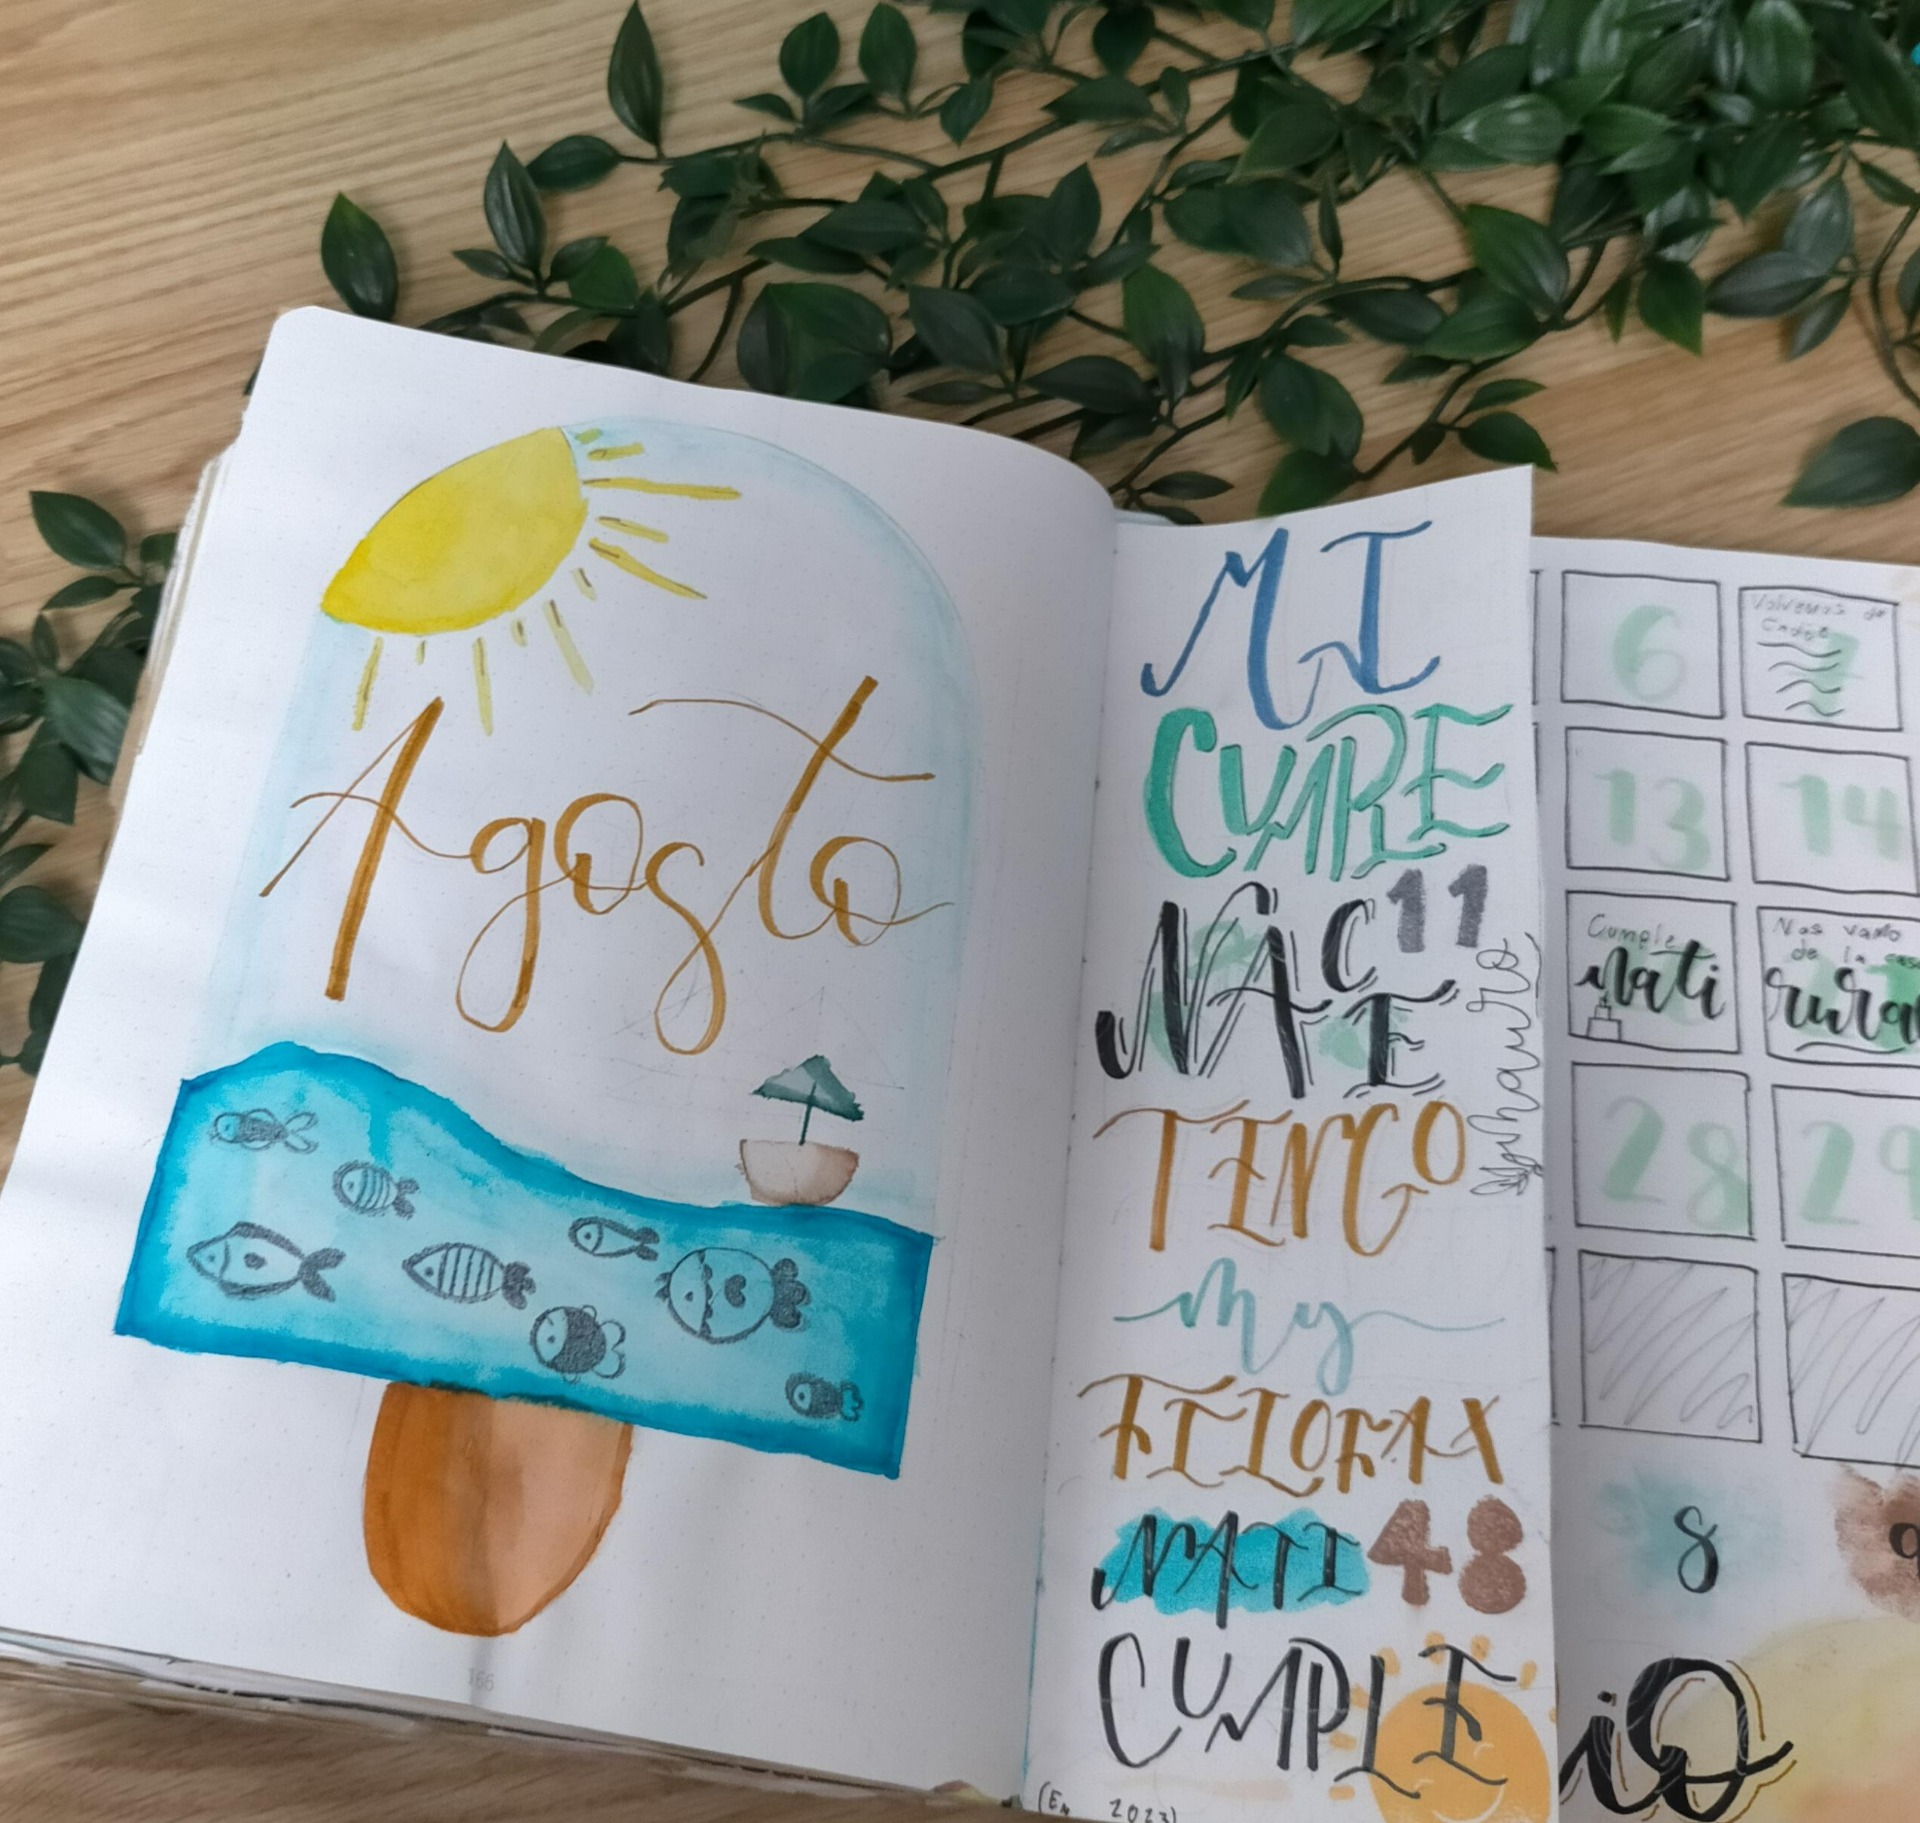 Agosto
166
MI
CUMPLE
NACE 11
Ghauro
TENGO
my
FILOFAX
NATI 48
CUMPLE
(En 2023)
6
Volvemos de
Cadiz
7
13 14
Cumple
nati
Nos vamo
de la casa
rural
28 29
8 9
io